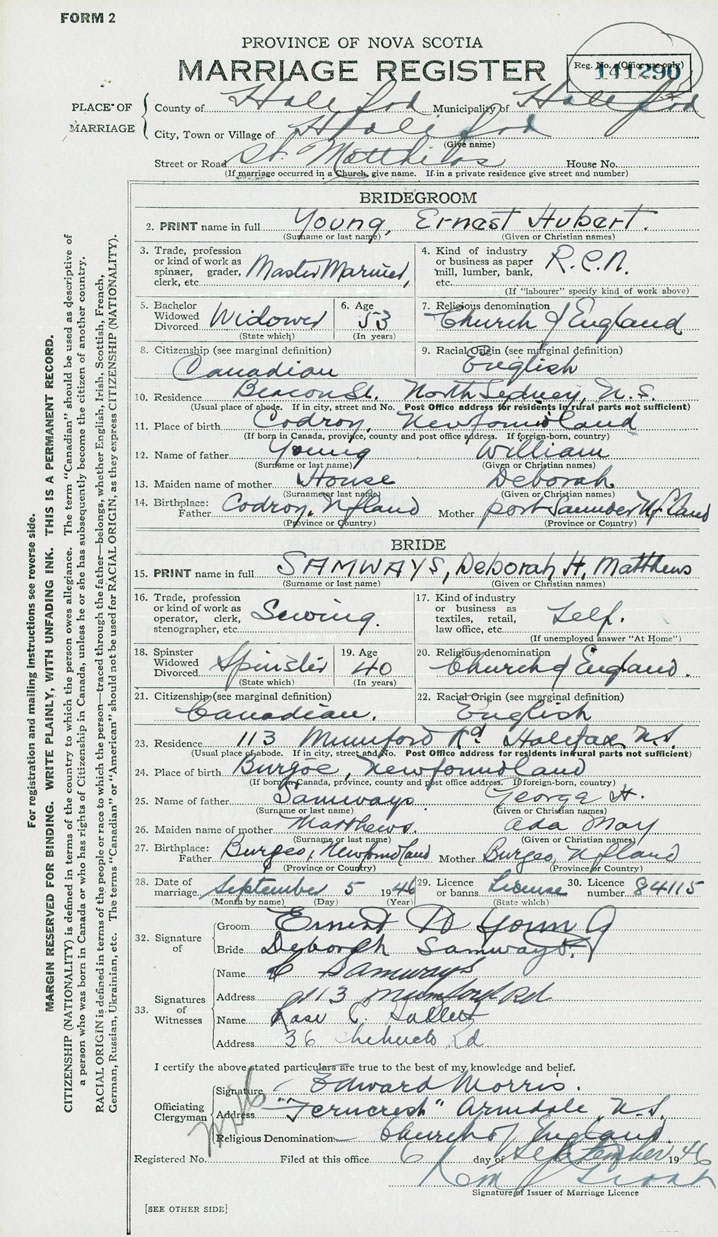 FORM 2
PROVINCE OF NOVA SCOTIA
MARRIAGE REGISTER
Reg. No. (Office use only)
141290
PLACE OF MARRIAGE
County of Halifax Municipality of Halifax
City, Town or Village of Halifax
(Give name)
Street or Road St. Matthias House No.
(If marriage occurred in a Church, give name. If in a private residence give street and number)
BRIDEGROOM
2. PRINT name in full Young, Ernest Hubert.
(Surname or last name) (Given or Christian names)
3. Trade, profession or kind of work as spinner, grader, clerk, etc. Master Mariner,
4. Kind of industry or business as paper mill, lumber, bank, etc. R.C.N.
(If "labourer" specify kind of work above)
5. Bachelor Widowed Divorced Widower
(State which)
6. Age 53
(In years)
7. Religious denomination
Church of England
8. Citizenship (see marginal definition)
Canadian
9. Racial Origin (see marginal definition)
English
10. Residence Beacon St. North Sydney, N.S.
(Usual place of abode. If in city, street and No. Post Office address for residents in rural parts not sufficient)
11. Place of birth Codroy, Newfoundland
(If born in Canada, province, county and post office address. If foreign-born, country)
12. Name of father Young William
(Surname or last name) (Given or Christian names)
13. Maiden name of mother House Deborah
(Surname or last name) (Given or Christian names)
14. Birthplace: Father Codroy, Nfland Mother port Saunder Nfland
(Province or Country) (Province or Country)
BRIDE
15. PRINT name in full SAMWAYS, Deborah H. Matthews
(Surname or last name) (Given or Christian names)
16. Trade, profession or kind of work as operator, clerk, stenographer, etc. Sewing.
17. Kind of industry or business as textiles, retail, law office, etc. Self.
(If unemployed answer "At Home")
18. Spinster Widowed Divorced Spinster
(State which)
19. Age 40
(In years)
20. Religious denomination
Church of England.
21. Citizenship (see marginal definition)
Canadian.
22. Racial Origin (see marginal definition)
English
23. Residence 113 Mumford Rd Halifax N.S.
(Usual place of abode. If in city, street and No. Post Office address for residents in rural parts not sufficient)
24. Place of birth Burgoe, Newfoundland
(If born in Canada, province, county and post office address. If foreign-born, country)
25. Name of father Samways. George H.
(Surname or last name) (Given or Christian names)
26. Maiden name of mother Matthews. Ada May
(Surname or last name) (Given or Christian names)
27. Birthplace: Father Burgeo, Newfoundland Mother Burgeo, Nfland
(Province or Country) (Province or Country)
28. Date of marriage September 5 1946 29. Licence or banns License 30. Licence number 84115
(Month by name) (Day) (Year) (State which)
32. Signature of
Groom Ernest H Young
Bride Deborah Samways.
33. Signatures of Witnesses
Name Samways
Address 113 Mumford Rd
Name
Address 36 Rd
I certify the above stated particulars are true to the best of my knowledge and belief.
Officiating Clergyman
Signature Edward Morris.
Address "Ferncrest" Armdale, N.S.
Religious Denomination Church of England.
Registered No. Filed at this office 6 day of September 1946
Signature of Issuer of Marriage Licence
[SEE OTHER SIDE]
For registration and mailing instructions see reverse side.
MARGIN RESERVED FOR BINDING. WRITE PLAINLY, WITH UNFADING INK. THIS IS A PERMANENT RECORD.
CITIZENSHIP (NATIONALITY) is defined in terms of the country to which the person owes allegiance. The term "Canadian" should be used as descriptive of
a person who was born in Canada or who has rights of Citizenship in Canada, unless he or she has subsequently become the citizen of another country.
RACIAL ORIGIN is defined in terms of the people or race to which the person—traced through the father—belongs, whether English, Irish, Scottish, French,
German, Russian, Ukrainian, etc. The terms "Canadian" or "American" should not be used for RACIAL ORIGIN, as they express CITIZENSHIP (NATIONALITY).